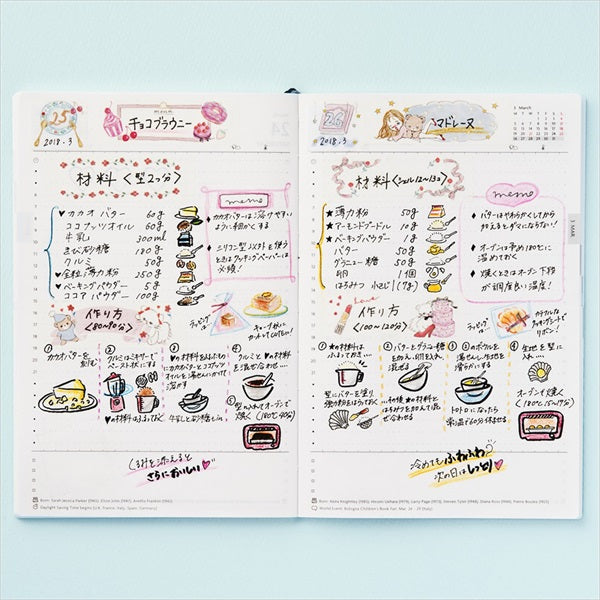 25
menu
チョコブラウニー
2018.3
材料〈型2つ分〉
♥カカオバター 60g
ココナッツオイル 60g
牛乳 300ml
きび砂糖 180g
クルミ 50g
♥全粒薄力粉 250g
♥ベーキングパウダー 5g
ココアパウダー 100g
memo
♦カカオバターは溶けやすいように細かくする
♦シリコン型以外を使うときはクッキングペーパーは必須!
作り方
〈80~90分〉
ラッピング
①カカオバターを刻む
②クルミはミキサーでペースト状にする
♥の材料はふるっておく
牛乳と砂糖もin
④クルミと♥の材料を混ぜ合わせ…
⑤型に入れてオーブンで焼く(180℃ 40分)
くるみを添えると
さらにおいしい♥
Born: Sarah Jessica Parker (1965), Elton John (1947), Aretha Franklin (1942)
Daylight Saving Time begins (U.K, France, Italy, Spain, Germany)
26
マドレーヌ
2018.3
3 March
3 MAR
材料〈シェル12~13コ〉
★薄力粉 50g
★アーモンドプードル 10g
★ベーキングパウダー 1g
バター 50g
グラニュー糖 50g
卵 1個
はちみつ 小さじ1(7g)
memo
♦バターはやわらかくしてから加えるとダマにならない!
♦オーブンは予め180℃に温めておく
♦焼くときはオーブン下段が調度良い温度!
作り方
〈100~120分〉
ラッピング
①★の材料はふるっておき…
型にバターを塗り強力粉をはらっておく
②バターとグラニュー糖を加え、卵を入れ、混ぜる
…その後★の材料とはちみつを加えて混ぜ合わせる
トロトロになったら常温で60分休ませる
④生地を型に入れ…
オーブンで焼く(180℃ 15~17分)
冷めてもふわふわ
次の日はしっとり♥
Born: Keira Knightley (1985), Hitoshi Uehara (1979), Larry Page (1973), Steven Tyler (1948), Diana Ross (1944), Pierre Boulez (1925)
World Event: Bologna Children's Book Fair, Mar. 26 - 29 (Italy)